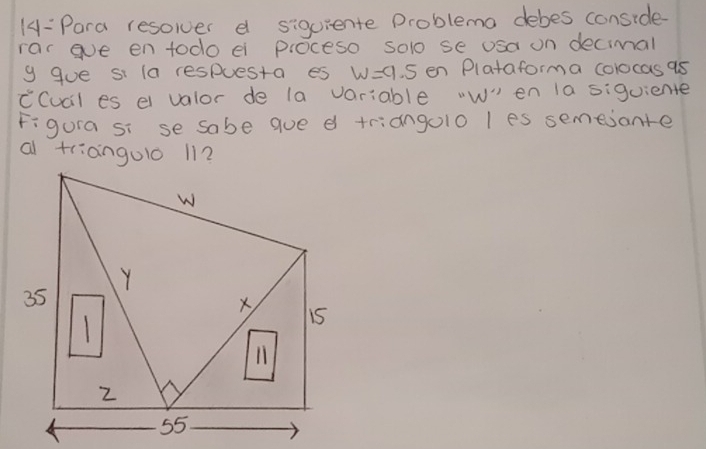 14-Para resolver el siguiente Problema debes conside-
rar que en todo el proceso solo se usa un decimal
y que si la respuesta es W=9.5 en Plataforma colocas 95
¿Cuál es el valor de la variable "W" en la siguiente
Figura si se sabe que el triángulo I es semejante
al triángulo II?
W
Y
35
X
15
I
II
Z
55